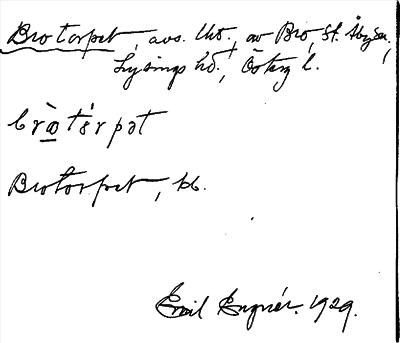 Brotorpet, avs. lht., av Bro, st. Åby sn,
Lysings hd., Österg l.
bròtérpət
Brotorpet, kb.
Emil Engnér. 1929.